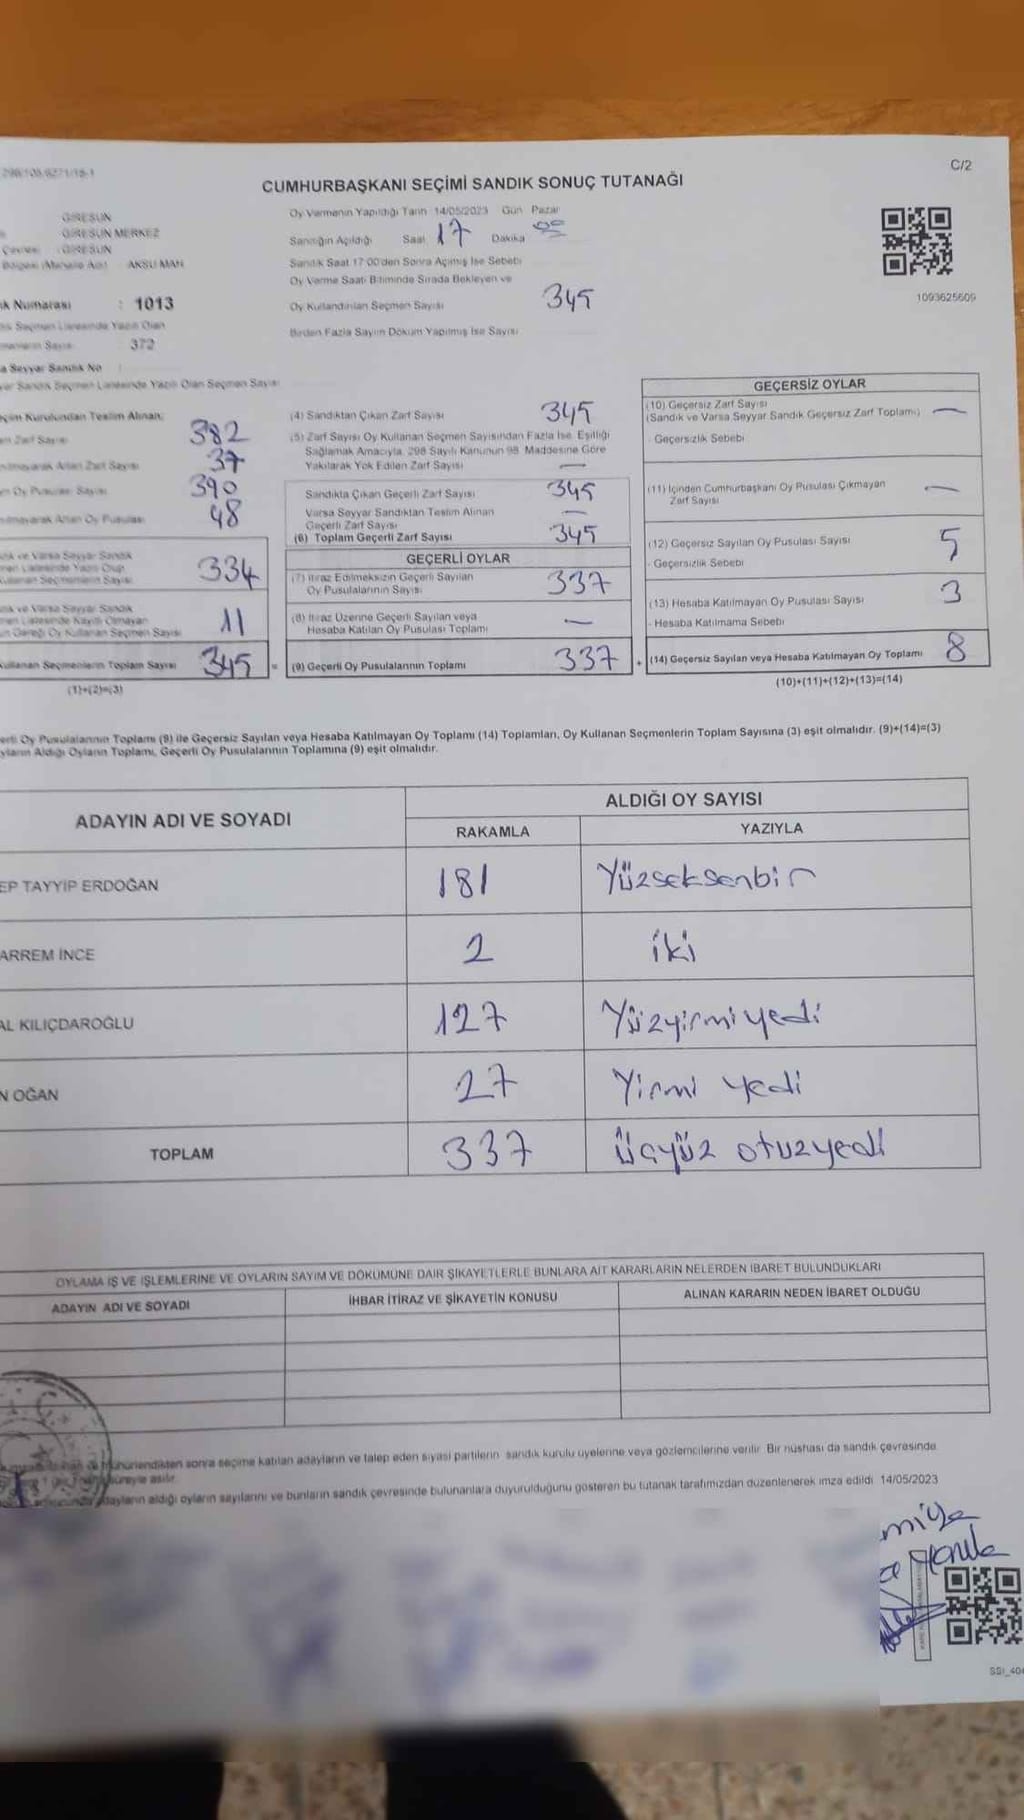 298/105/6271/18-1
C/2
CUMHURBAŞKANI SEÇİMİ SANDIK SONUÇ TUTANAĞI
GİRESUN
GİRESUN MERKEZ
GİRESUN
AKSU MAH
k Numarası : 1013
372
a Seyyar Sandık No
Oy Vermenin Yapıldığı Tarih 14/05/2023 Gün Pazar
Sandığın Açıldığı Saat 17 Dakika
Sandık Saat 17:00'den Sonra Açılmış İse Sebebi
Oy Verme Saati Bitiminde Sırada Bekleyen ve
Oy Kullandırılan Seçmen Sayısı 345
Birden Fazla Sayım Döküm Yapılmış İse Sayısı
1093625609
çim Kurulundan Teslim Alınan;
en Zarf Sayısı 382
Artan Zarf Sayısı 37
n Oy Pusulası Sayısı 390
Artan Oy Pusulası 48
334
11
ullanan Seçmenlerin Toplam Sayısı 345
(1)+(2)=(3)
(4) Sandıktan Çıkan Zarf Sayısı 345
(5) Zarf Sayısı Oy Kullanan Seçmen Sayısından Fazla İse, Eşitliği
Sağlamak Amacıyla, 298 Sayılı Kanunun 98. Maddesine Göre
Yakılarak Yok Edilen Zarf Sayısı —
Sandıkta Çıkan Geçerli Zarf Sayısı 345
Varsa Seyyar Sandıktan Teslim Alınan
Geçerli Zarf Sayısı —
(6) Toplam Geçerli Zarf Sayısı 345
GEÇERLİ OYLAR
(7) İtiraz Edilmeksizin Geçerli Sayılan
Oy Pusulalarının Sayısı 337
(8) İtiraz Üzerine Geçerli Sayılan veya
Hesaba Katılan Oy Pusulası Toplamı —
= (9) Geçerli Oy Pusulalarının Toplamı 337
GEÇERSİZ OYLAR
(10) Geçersiz Zarf Sayısı
(Sandık ve Varsa Seyyar Sandık Geçersiz Zarf Toplamı) —
- Geçersizlik Sebebi
(11) İçinden Cumhurbaşkanı Oy Pusulası Çıkmayan
Zarf Sayısı —
(12) Geçersiz Sayılan Oy Pusulası Sayısı 5
- Geçersizlik Sebebi
(13) Hesaba Katılmayan Oy Pusulası Sayısı 3
- Hesaba Katılmama Sebebi
+ (14) Geçersiz Sayılan veya Hesaba Katılmayan Oy Toplamı 8
(10)+(11)+(12)+(13)=(14)
erli Oy Pusulalarının Toplamı (9) ile Geçersiz Sayılan veya Hesaba Katılmayan Oy Toplamı (14) Toplamları, Oy Kullanan Seçmenlerin Toplam Sayısına (3) eşit olmalıdır. (9)+(14)=(3)
yların Aldığı Oyların Toplamı, Geçerli Oy Pusulalarının Toplamına (9) eşit olmalıdır.
ADAYIN ADI VE SOYADI
ALDIĞI OY SAYISI
RAKAMLA YAZIYLA
EP TAYYİP ERDOĞAN 181 Yüzseksenbir
ARREM İNCE 2 iki
AL KILIÇDAROĞLU 127 Yüzyirmiyedi
N OĞAN 27 Yirmi yedi
TOPLAM 337 Üçyüz otuzyedi
OYLAMA İŞ VE İŞLEMLERİNE VE OYLARIN SAYIM VE DÖKÜMÜNE DAİR ŞİKAYETLERLE BUNLARA AİT KARARLARIN NELERDEN İBARET BULUNDUKLARI
ADAYIN ADI VE SOYADI İHBAR İTİRAZ VE ŞİKAYETİN KONUSU ALINAN KARARIN NEDEN İBARET OLDUĞU
mühürlendikten sonra seçime katılan adayların ve talep eden siyasi partilerin sandık kurulu üyelerine veya gözlemcilerine verilir. Bir nüshası da sandık çevresinde
süreyle asılır.
adayların aldığı oyların sayılarını ve bunların sandık çevresinde bulunanlara duyurulduğunu gösteren bu tutanak tarafımızdan düzenlenerek imza edildi. 14/05/2023